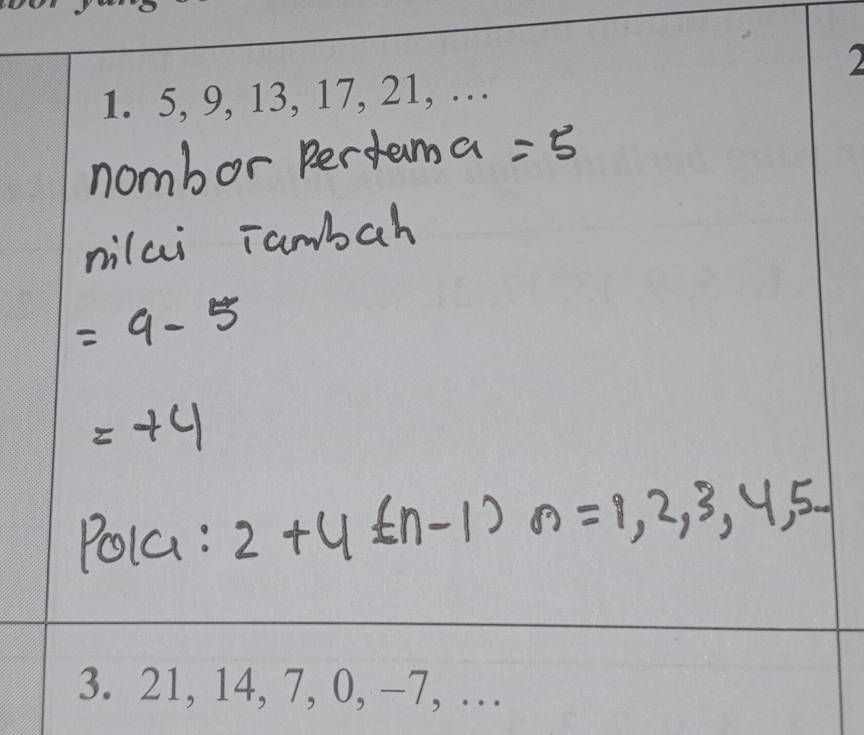 1. 5, 9, 13, 17, 21, ...
nombor Pertama = 5
nilai Tambah
= 9 - 5
= +4
Pola: 2 + 4 (n-1) n = 1, 2, 3, 4, 5..
3. 21, 14, 7, 0, −7, ...